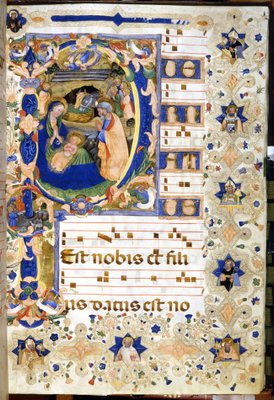 Est nobis et fili
us datus est no